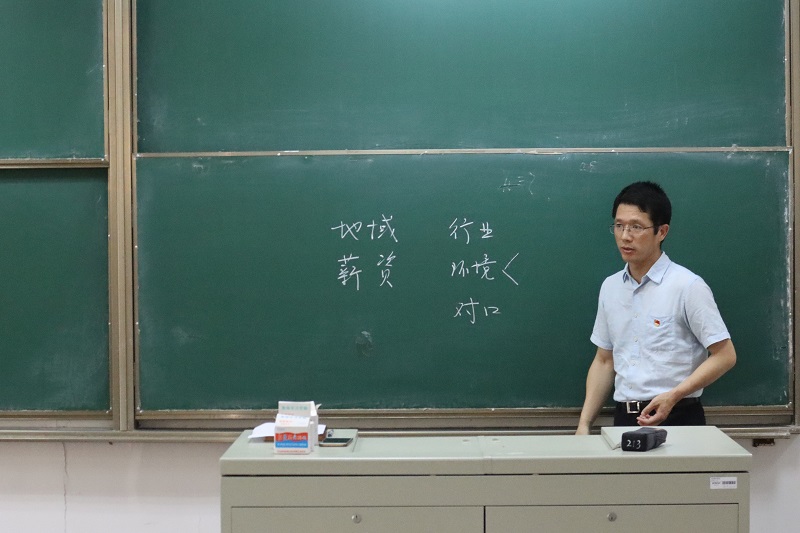 地域 行业
薪资 环境<
对口
213